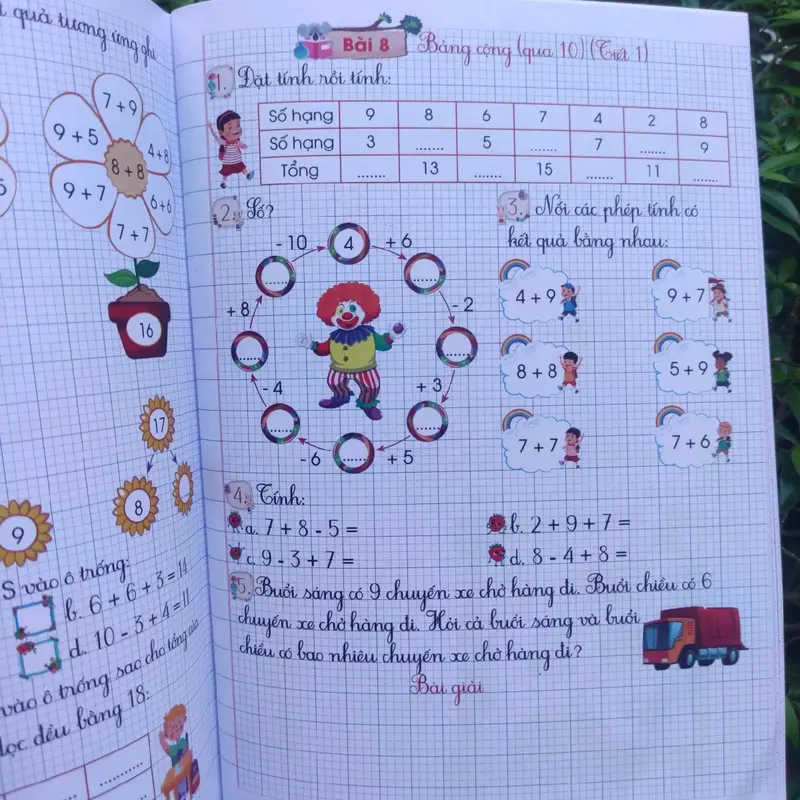 quả tương ứng ghi
7 + 9
9 + 5
4 + 8
8 + 8
9 + 7
6 + 6
7 + 7
5
16
17
8
9
S vào ô trống:
b. 6 + 6 + 3 = 14
d. 10 - 3 + 4 = 11
vào ô trống sao cho tổng của
dọc đều bằng 18:
Bài 8 Bảng cộng (qua 10) (Tiết 1)
1. Đặt tính rồi tính:
Số hạng 9 8 6 7 4 2 8
Số hạng 3 ....... 5 ....... 7 ....... 9
Tổng ....... 13 ....... 15 ....... 11 .......
2. Số?
- 10 4 + 6
....... .......
+ 8 - 2
....... .......
- 4 + 3
....... .......
- 6 ....... + 5
3. Nối các phép tính có
kết quả bằng nhau:
4 + 9 9 + 7
8 + 8 5 + 9
7 + 7 7 + 6
4. Tính:
a. 7 + 8 - 5 = b. 2 + 9 + 7 =
c. 9 - 3 + 7 = d. 8 - 4 + 8 =
5. Buổi sáng có 9 chuyến xe chở hàng đi. Buổi chiều có 6
chuyến xe chở hàng đi. Hỏi cả buổi sáng và buổi
chiều có bao nhiêu chuyến xe chở hàng đi?
Bài giải